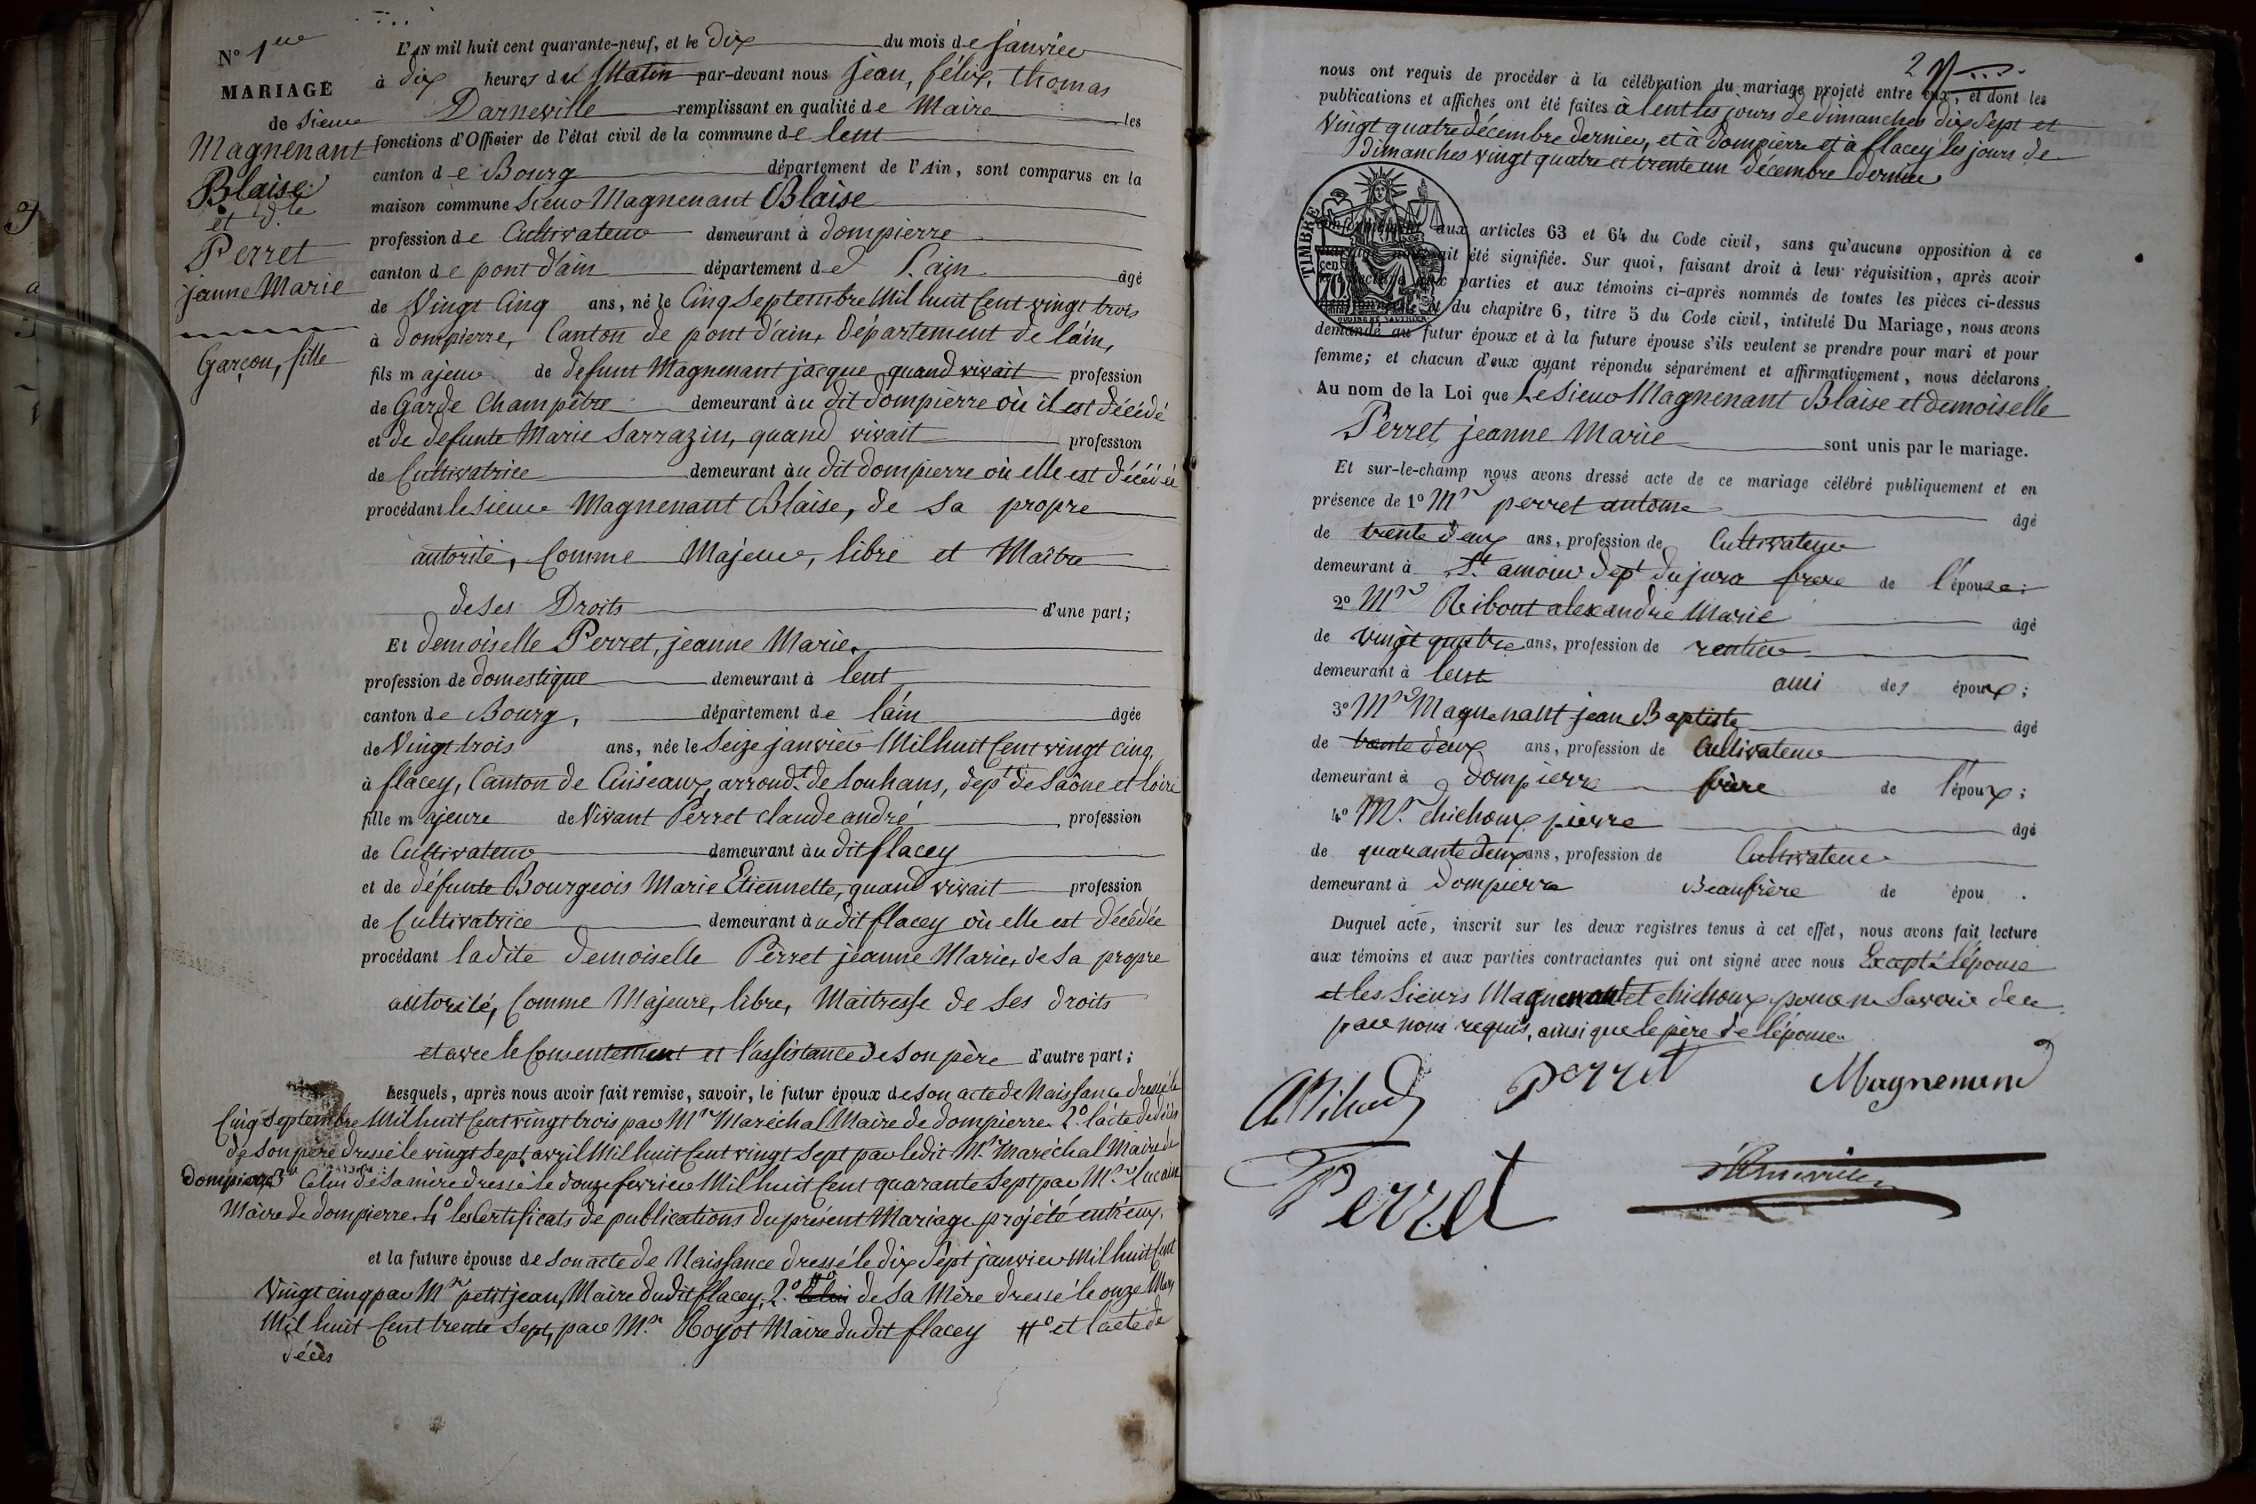 N° 1er
MARIAGE
de sieur
Magnenant
Blaise
et dlle
Perret
jeanne Marie
Garçon, fille
L'AN mil huit cent quarante-neuf, et le dix du mois de janvier
à dix heures du Matin par-devant nous jean, félix, thomas
Darneville remplissant en qualité de Maire les
fonctions d'Officier de l'état civil de la commune de lent
canton de Bourg département de l'Ain, sont comparus en la
maison commune Sieur Magnenant Blaise
profession de Cultivateur demeurant à dompierre
canton de pont d'ain département de l'ain âgé
de Vingt Cinq ans, né le Cinq Septembre Mil huit Cent vingt trois
à dompierre, Canton de pont d'ain, département de l'ain,
fils majeur de defunt Magnenant jacque quand vivait profession
de Garde Champêtre demeurant àu dit dompierre où il est décédé
et de defunte Marie Sarrazin, quand vivait profession
de Cultivatrice demeurant àu dit dompierre où elle est décédée
procédant le sieur Magnenant Blaise, de sa propre
autorité, Comme Majeur, libre et Maître
de ses Droits d'une part;
Et demoiselle Perret, jeanne Marie.
profession de domestique demeurant à lent
canton de Bourg, département de l'ain âgée
de Vingt trois ans, née le Seize janvier Mil huit Cent vingt cinq,
à flacey, Canton de Cuiseaux, arrondt de louhans, dept de Saône et loire
fille majeure de Vivant Perret claude andré profession
de Cultivateur demeurant àu dit flacey
et de défunte Bourgeois Marie Etiennette, quand vivait profession
de Cultivatrice demeurant àu dit flacey où elle est décédée
procédant ladite demoiselle Perret jeanne Marie, de sa propre
autorité, Comme Majeure, libre, Maitresse de ses droits
et avec le Consentement et l'assistance de son père d'autre part;
Lesquels, après nous avoir fait remise, savoir, le futur époux de son acte de Naissance dressé le
Cinq Septembre Mil huit Cent vingt trois par Mr Maréchal Maire de dompierre 2° l'acte de décès
de son père dressé le vingt sept avril Mil huit Cent vingt sept par ledit Mr Maréchal Maire de
dompierre 3° Celui de sa mère dressé le douze fevrier Mil huit Cent quarante sept par Mr lucain
Maire de dompierre. 4° les Certificats de publications du présent Mariage projété entr'eux.
et la future épouse de son acte de Naissance dressé le dix Sept janvier Mil huit Cent
Vingt cinq par Mr petitjean, Maire du dit flacey, 2° de sa Mère dressé le onze Mars
Mil huit Cent trente Sept, par Mr Royot Maire du dit flacey # et l'acte de
décès
2
nous ont requis de procéder à la célébration du mariage projeté entre eux, et dont les
publications et affiches ont été faites à lent les jours de dimanches dix Sept et
Vingt quatre décembre dernier, et à dompierre et à flacey les jours de
dimanches vingt quatre et trente un décembre dernier
TIMBRE
conformément aux articles 63 et 64 du Code civil, sans qu'aucune opposition à ce
été signifiée. Sur quoi, faisant droit à leur réquisition, après avoir
aux parties et aux témoins ci-après nommés de toutes les pièces ci-dessus
et du chapitre 6, titre 5 du Code civil, intitulé Du Mariage, nous avons
demandé au futur époux et à la future épouse s'ils veulent se prendre pour mari et pour
femme; et chacun d'eux ayant répondu séparément et affirmativement, nous déclarons
Au nom de la Loi que Le Sieur Magnenant Blaise et demoiselle
Perret jeanne Marie sont unis par le mariage.
Et sur-le-champ nous avons dressé acte de ce mariage célébré publiquement et en
présence de 1° Mr perret antoine âgé
de trente deux ans, profession de Cultivateur
demeurant à St amour dept du jura frere de l'épouse;
2° Mr Ribout alexandre Marie âgé
de vingt quatre ans, profession de rentier
demeurant à lent ami des époux;
3° Mr Magnenant jean Baptiste âgé
de trente deux ans, profession de Cultivateur
demeurant à dompierre frère de l'époux;
4° Mr. chichoux pierre âgé
de quarante deux ans, profession de Cultivateur
demeurant à dompierre Beaufrère de épou .
Duquel acte, inscrit sur les deux registres tenus à cet effet, nous avons fait lecture
aux témoins et aux parties contractantes qui ont signé avec nous Excepté l'épouse
et les Sieurs Magnenant et chichoux pour ne savoir de ce
par nous requis, ainsi que le père de l'épouse
Perret
Magnenand
Perret